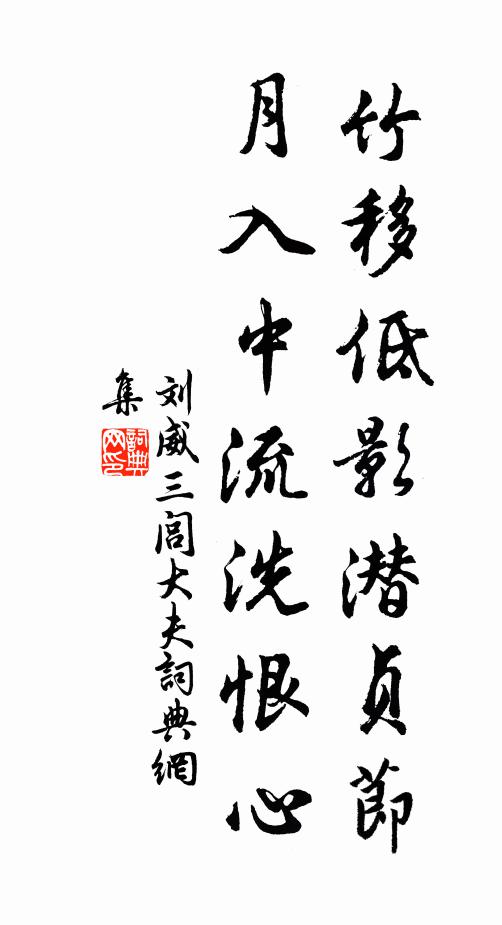 竹移低影潜贞節
月入中流洗恨心
刘威三闾大夫詞典網
集
詞典
网印